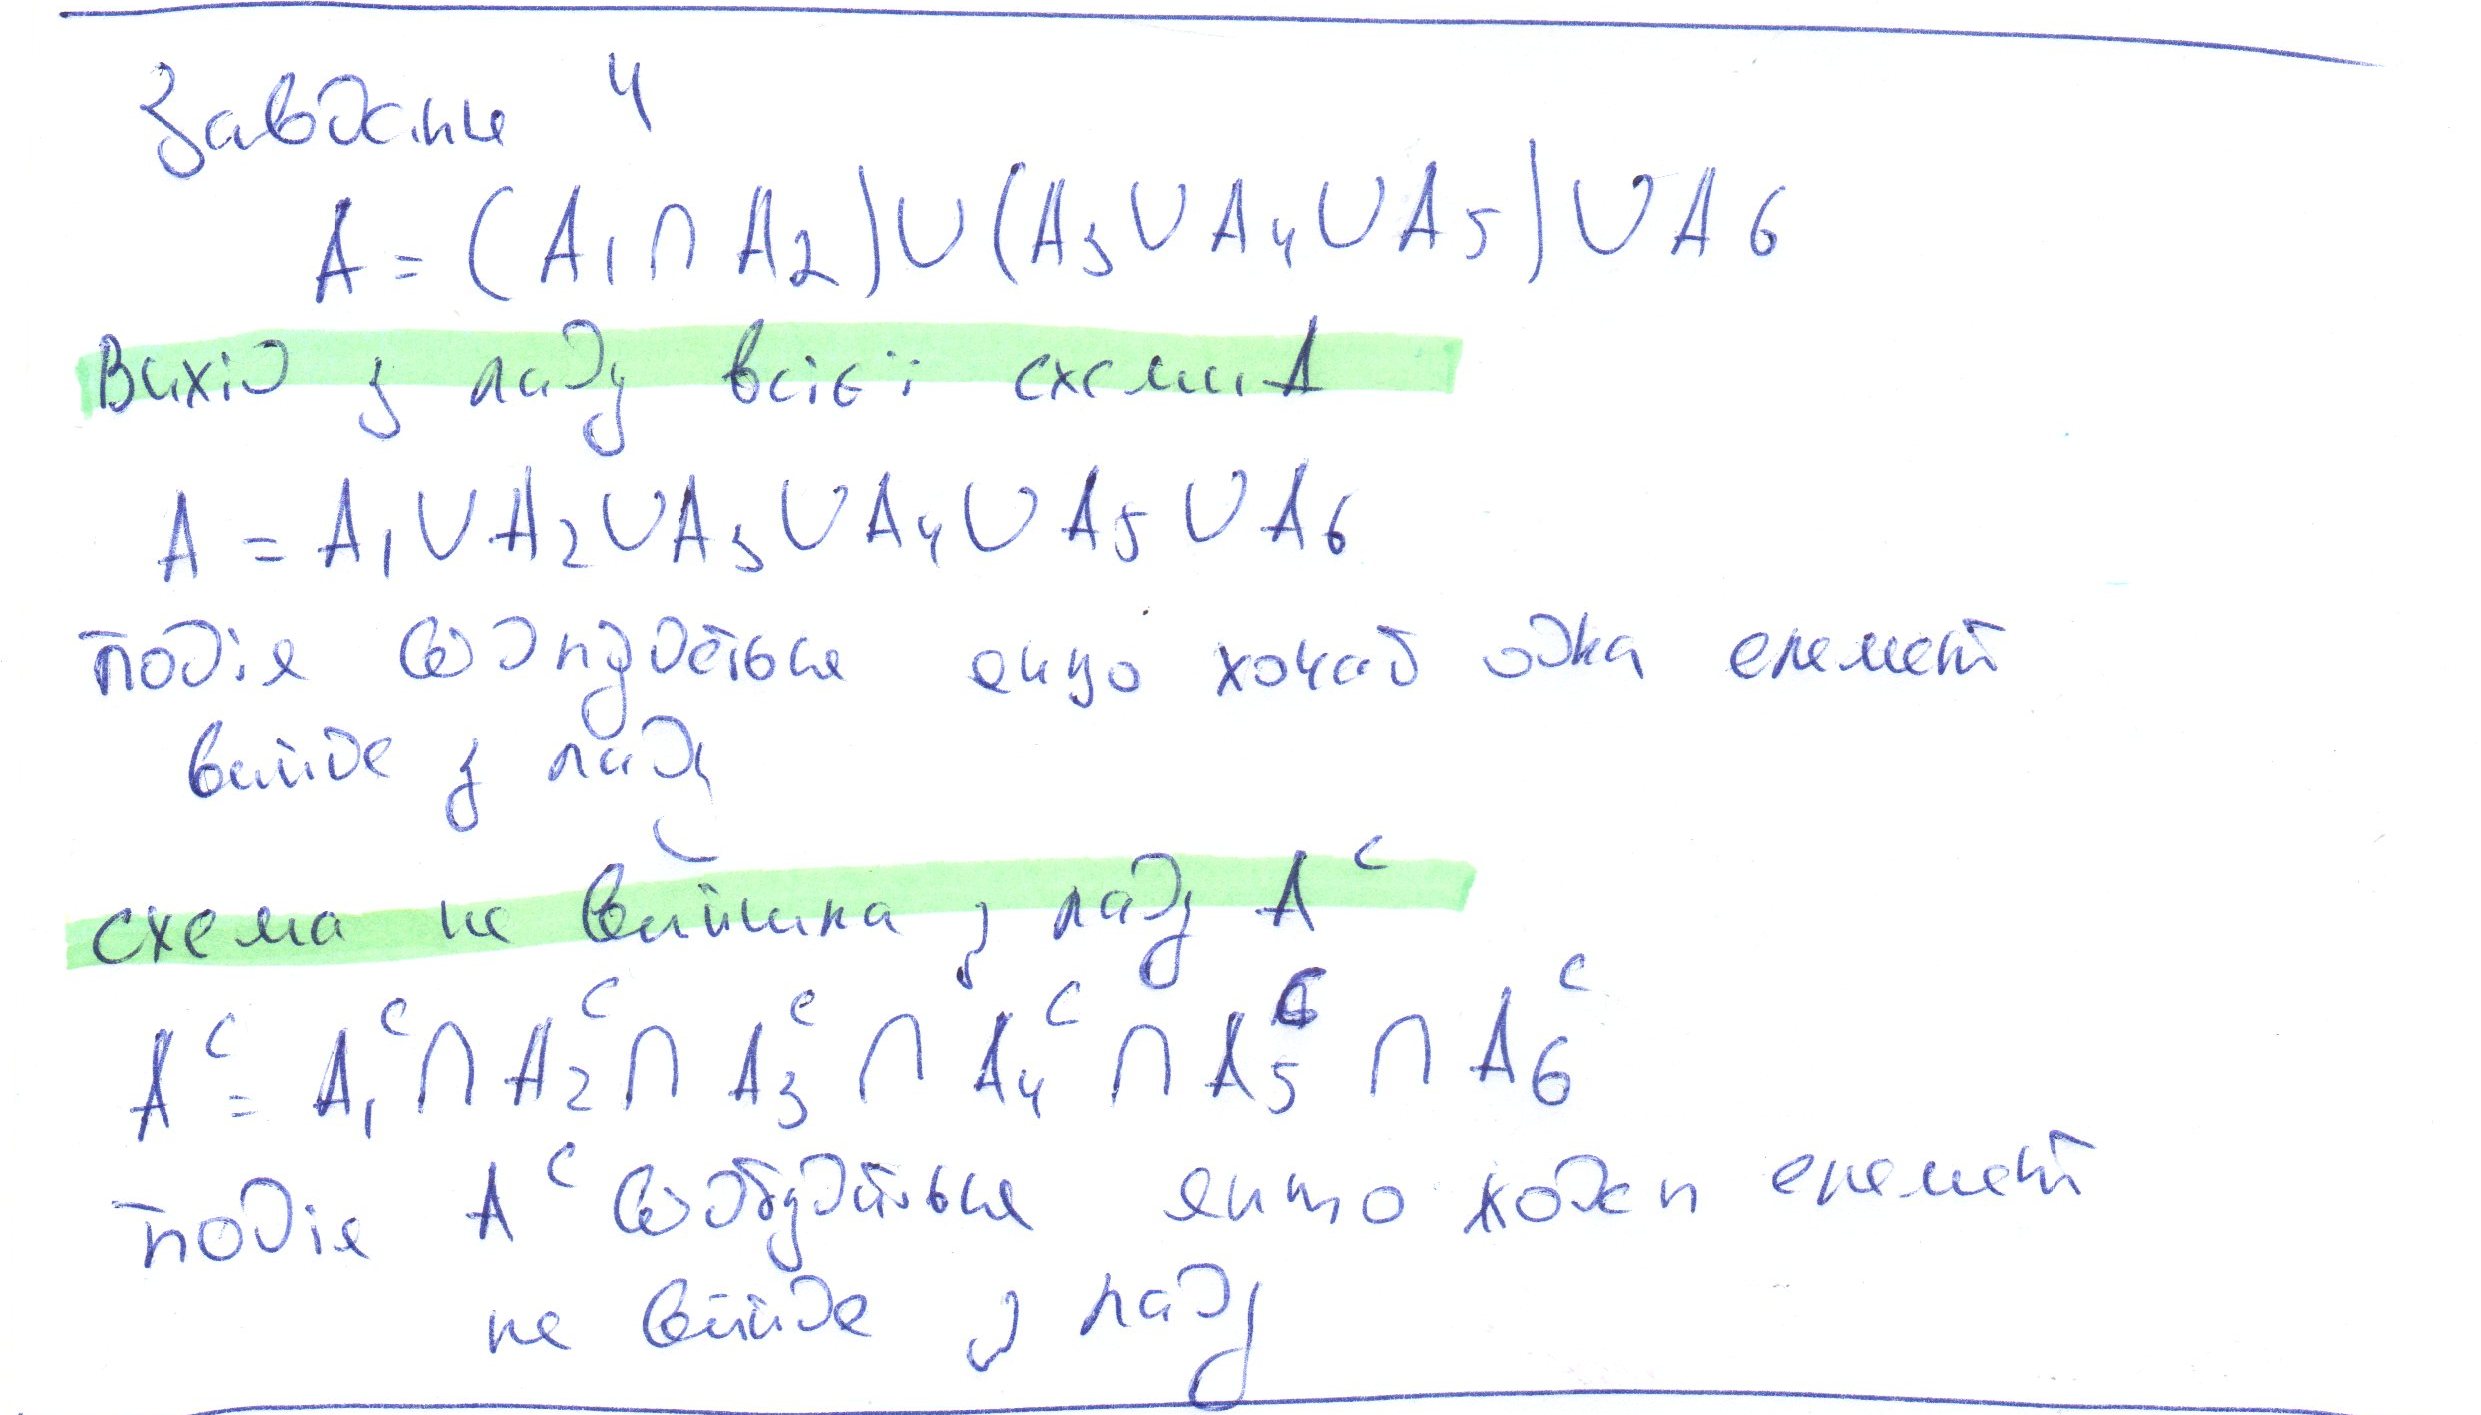 Завдання 4
A = (A₁ ∩ A₂) ∪ (A₃ ∪ A₄ ∪ A₅) ∪ A₆
Вихід з ладу всієї схеми A
A = A₁ ∪ A₂ ∪ A₃ ∪ A₄ ∪ A₅ ∪ A₆
подія якщо хочаб одна елемент
вийде з ладу
схема не вийшла з ладу Aᶜ
Aᶜ = A₁ᶜ ∩ A₂ᶜ ∩ A₃ᶜ ∩ A₄ᶜ ∩ A₅ᶜ ∩ A₆ᶜ
подія Aᶜ відбудеться якщо жоден елемент
не вийде з ладу